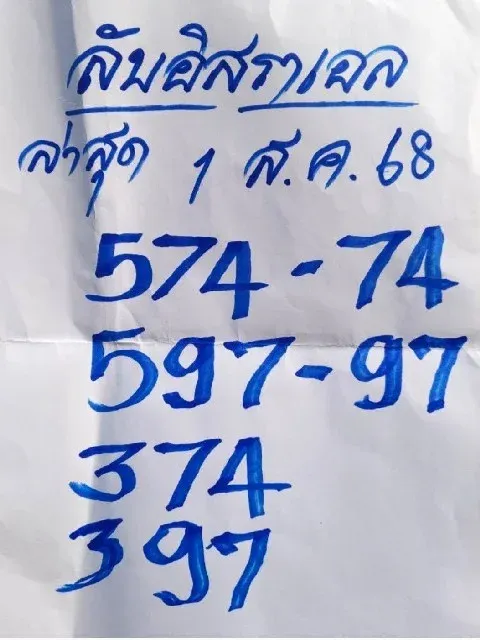 ลับอิสราเอล
ล่าสุด 1 ส.ค.68
574-74
597-97
374
397